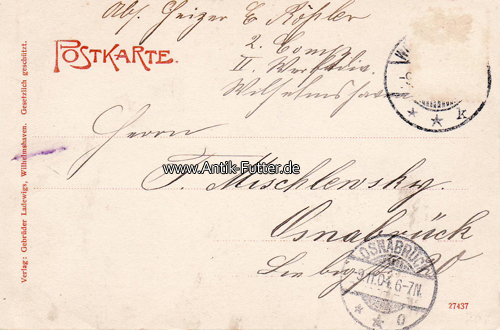 Abs. Heizer E Köhler
2. Comp.
II Werftdiv.
Wilhelmshaven
POSTKARTE.
Herrn
F. Mischlewsky.
www.Antik-Futter.de
Osnabrück
OSNABRÜCK
9.11.04.6-7N.
* * o
W
* * k
Verlag: Gebrüder Ladewigs, Wilhelmshaven. Gesetzlich geschützt.
27437